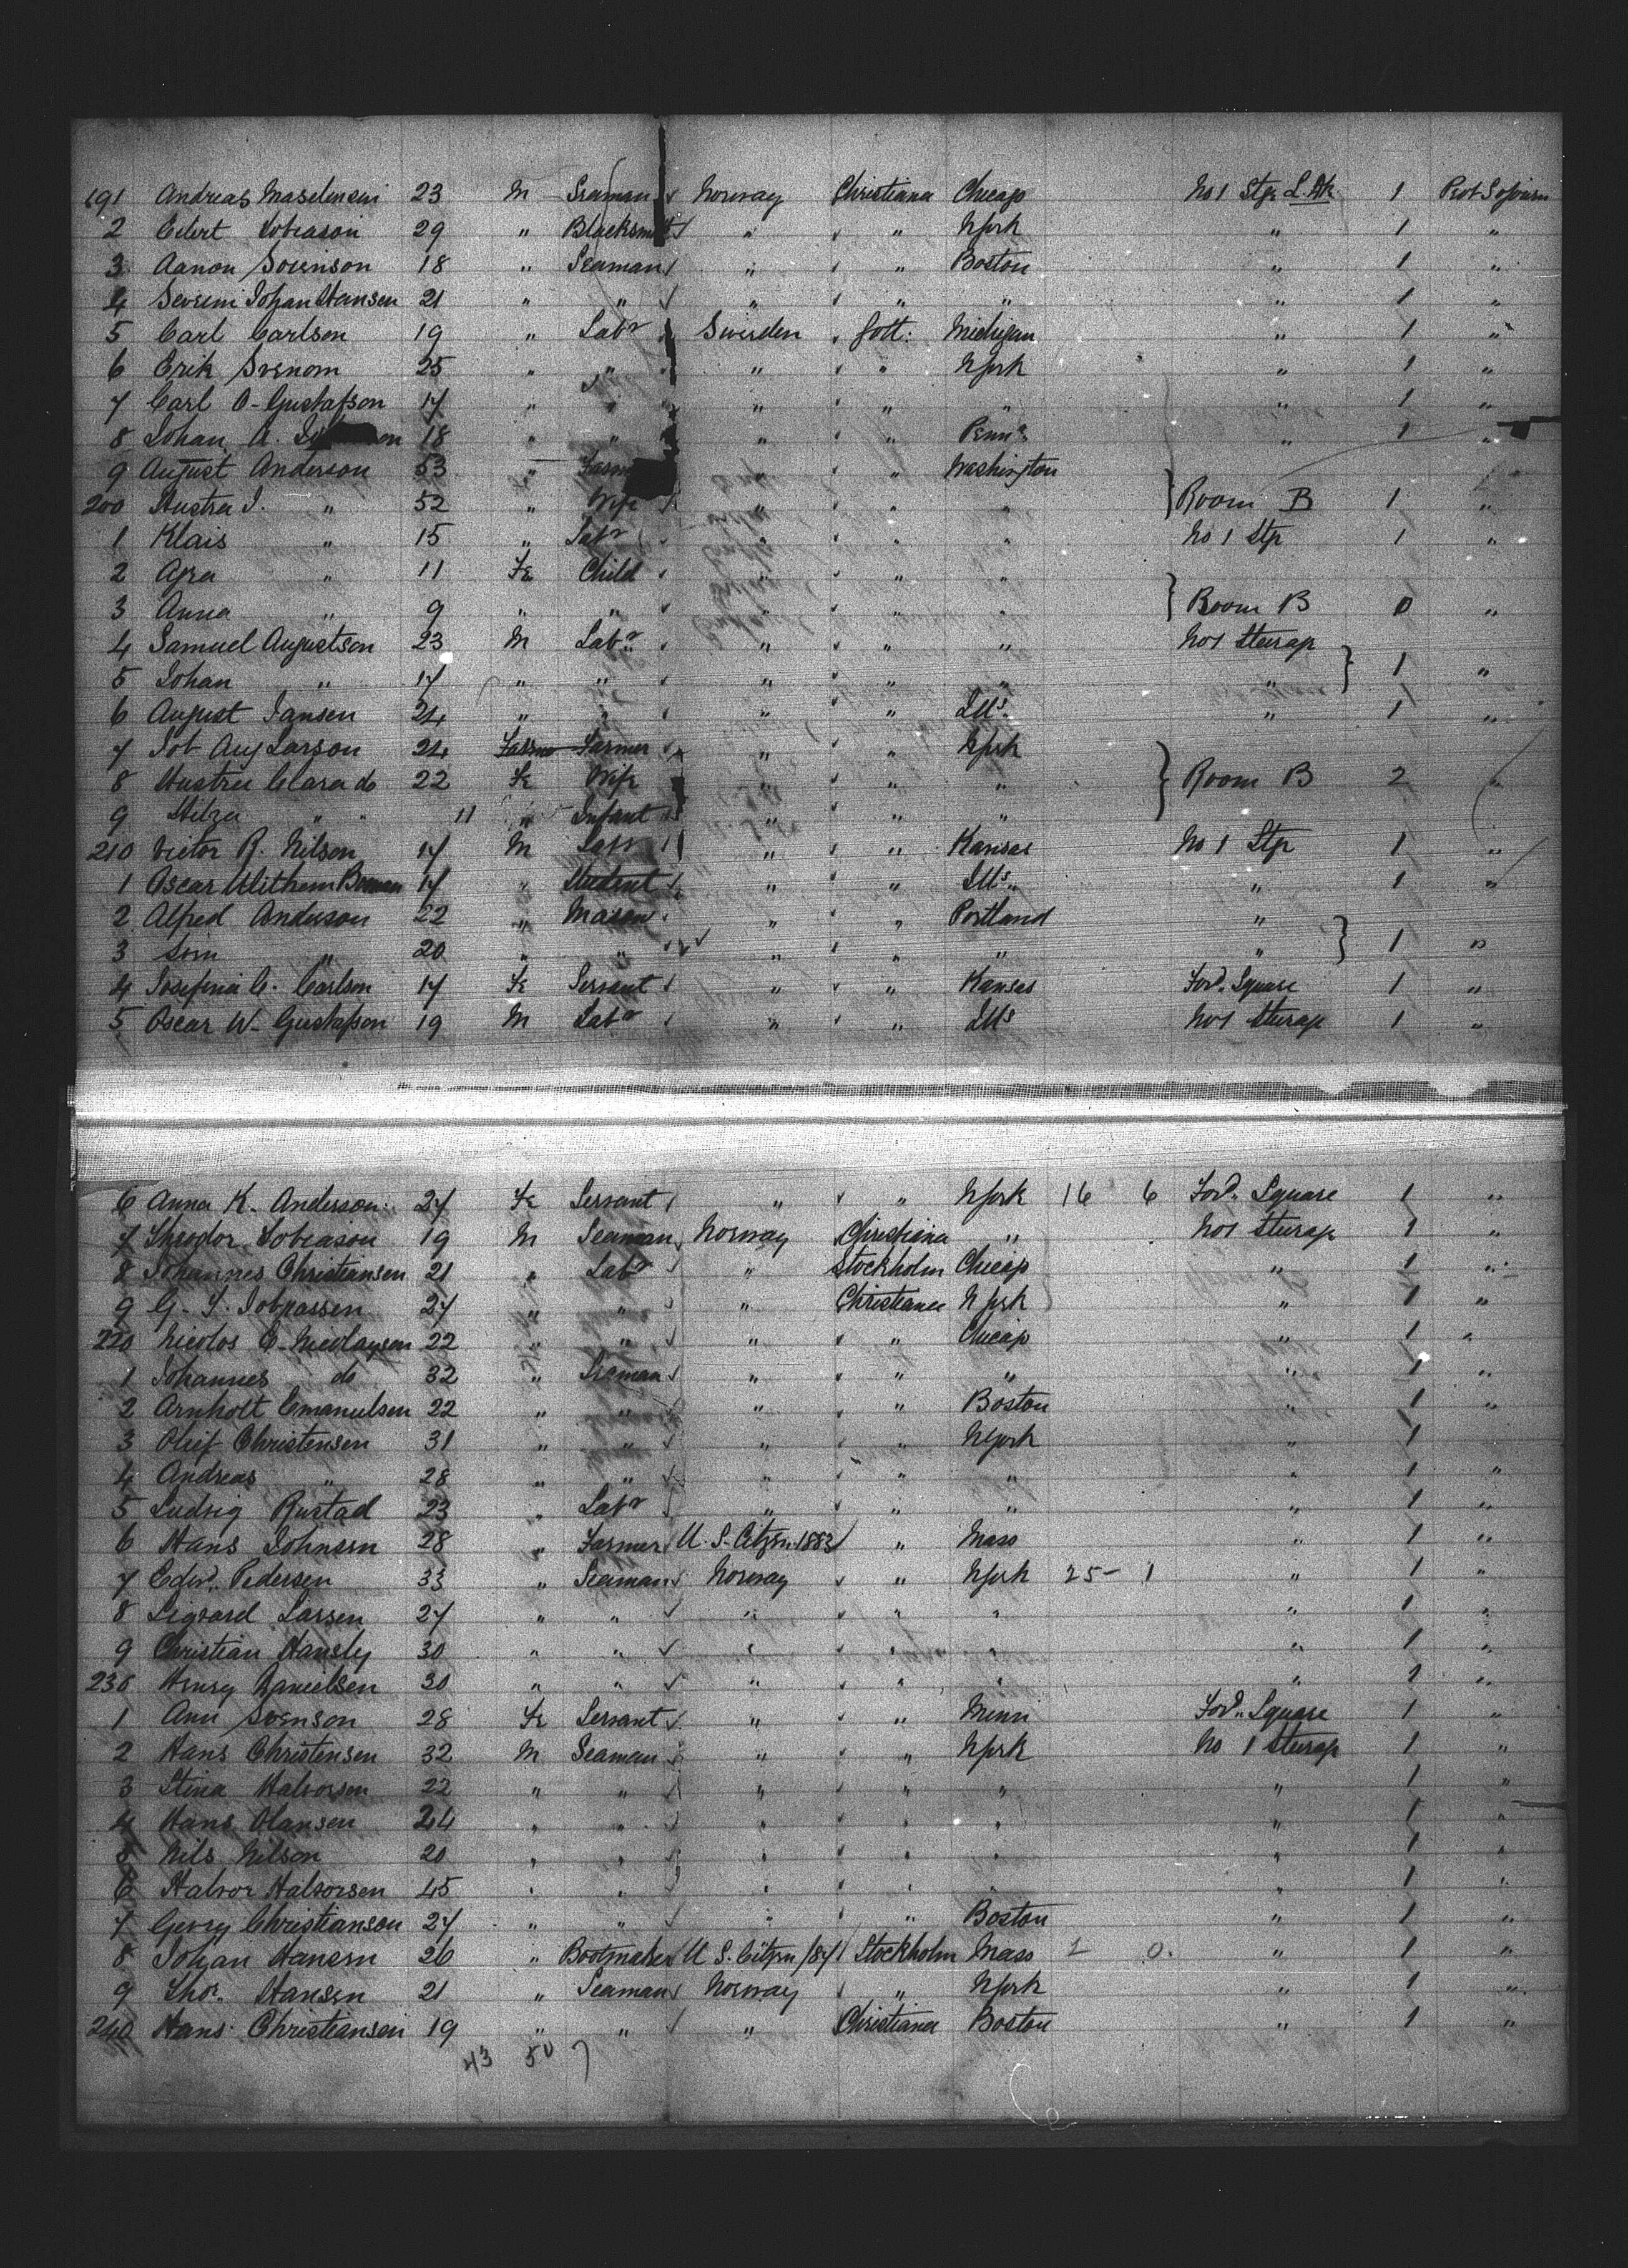 191 Andreas 23 M Seaman Norway Christiana Chicago No 1 Stge L. Dk 1 Prot Sojourn
2 Edert Tobiason 29 " Blacksmith " " N York " 1 "
3 Aanon Sorenson 18 " Seaman " " Boston " 1 "
4 Severin Johan Hansen 21 " " " " " " 1 "
5 Carl Carlson 19 " Labr Sweden Gott: Michigan " 1 "
6 Erik Svenom 25 " " " " N York " 1 "
7 Carl O- Gustafson 17 " " " " " " 1 "
8 Johan A. 18 " " " " Penna " 1 "
9 August Anderson 53 " Farm " " Washington
200 Hustra J. " 52 " Wife " " " Room B 1 "
1 Klais " 15 " Labr " " " No 1 Stge 1 "
2 " 11 Fe Child " " "
3 Anna " 9 " " " " " Room B 0 "
4 Samuel Augustson 23 M Labr " " " No 1 Steerage
5 Johan " 17 " " " " " " 1 "
6 August Jansen 24 " " " " Ills. " 1 "
7 Job Aug Larson 24 Farmer " " N York
8 Hustru Clara do 22 Fe Wife " " " Room B 2 "
9 " 11 " Infant " " "
210 Victor R. Nilson 17 M Labr " " Kansas No 1 Stge 1 "
1 Oscar 17 " Student " " Ills. " 1 "
2 Alfred Anderson 22 " Mason " " Portland "
3 " 20 " " " " " " 1 "
4 Josefina C. Carlson 17 Fe Servant " " Kansas Ford. Square 1 "
5 Oscar W- Gustafson 19 M Labr " " Ills No 1 Steerage 1 "
6 Anna K. Anderson 27 Fe Servant " " N York 16 6 Ford. Square 1 "
7 Theodor Tobiason 19 M Seaman Norway Christiana " No 1 Steerage 1 "
8 Johannes Christiansen 21 " Labr " Stockholm Chicago " 1 "
9 27 " " " Christiana N York " 1 "
220 Nicolos C- Nicolaysen 22 " " " " Chicago " 1 "
1 Johannes do 32 " Seaman " " " " 1 "
2 Arnholt Emanuelsen 22 " " " " Boston " 1 "
3 Oluf Christensen 31 " " " " N York " 1
4 Andreas " 28 " " " " " " 1 "
5 Ludvig Rustad 23 " Labr " " " " 1 "
6 Hans Johnson 28 " Farmer U. S. Citzen. 1883 " Mass " 1 "
7 Edwd. Pedersen 33 " Seaman Norway " N York 25 - 1 " 1 "
8 Sigvard Larsen 27 " " " " " " 1 "
9 Christian 30 " " " " " " 1 "
230 Henry Danielsen 30 " " " " " " 1 "
1 Ann Svenson 28 Fe Servant " " Minn Ford. Square 1 "
2 Hans Christensen 32 M Seaman " " N York No 1 Steerage 1 "
3 Stina Halvorsen 22 " " " " " " 1 "
4 Hans Olansen 24 " " " " " " 1 "
5 Nils Nilson 20 " " " " " " 1 "
6 Halvor Halvorsen 45 " " " " " " 1 "
7 Georg Christianson 27 " " " " Boston " 1 "
8 Johan Hansen 26 " Bootmaker U S. Citzen /87 Stockholm Mass 1 0. " 1 "
9 Thos. Hansen 21 " Seaman Norway " N York " 1 "
240 Hans Christiansen 19 " " " Christiana Boston " 1 "
43 50 7